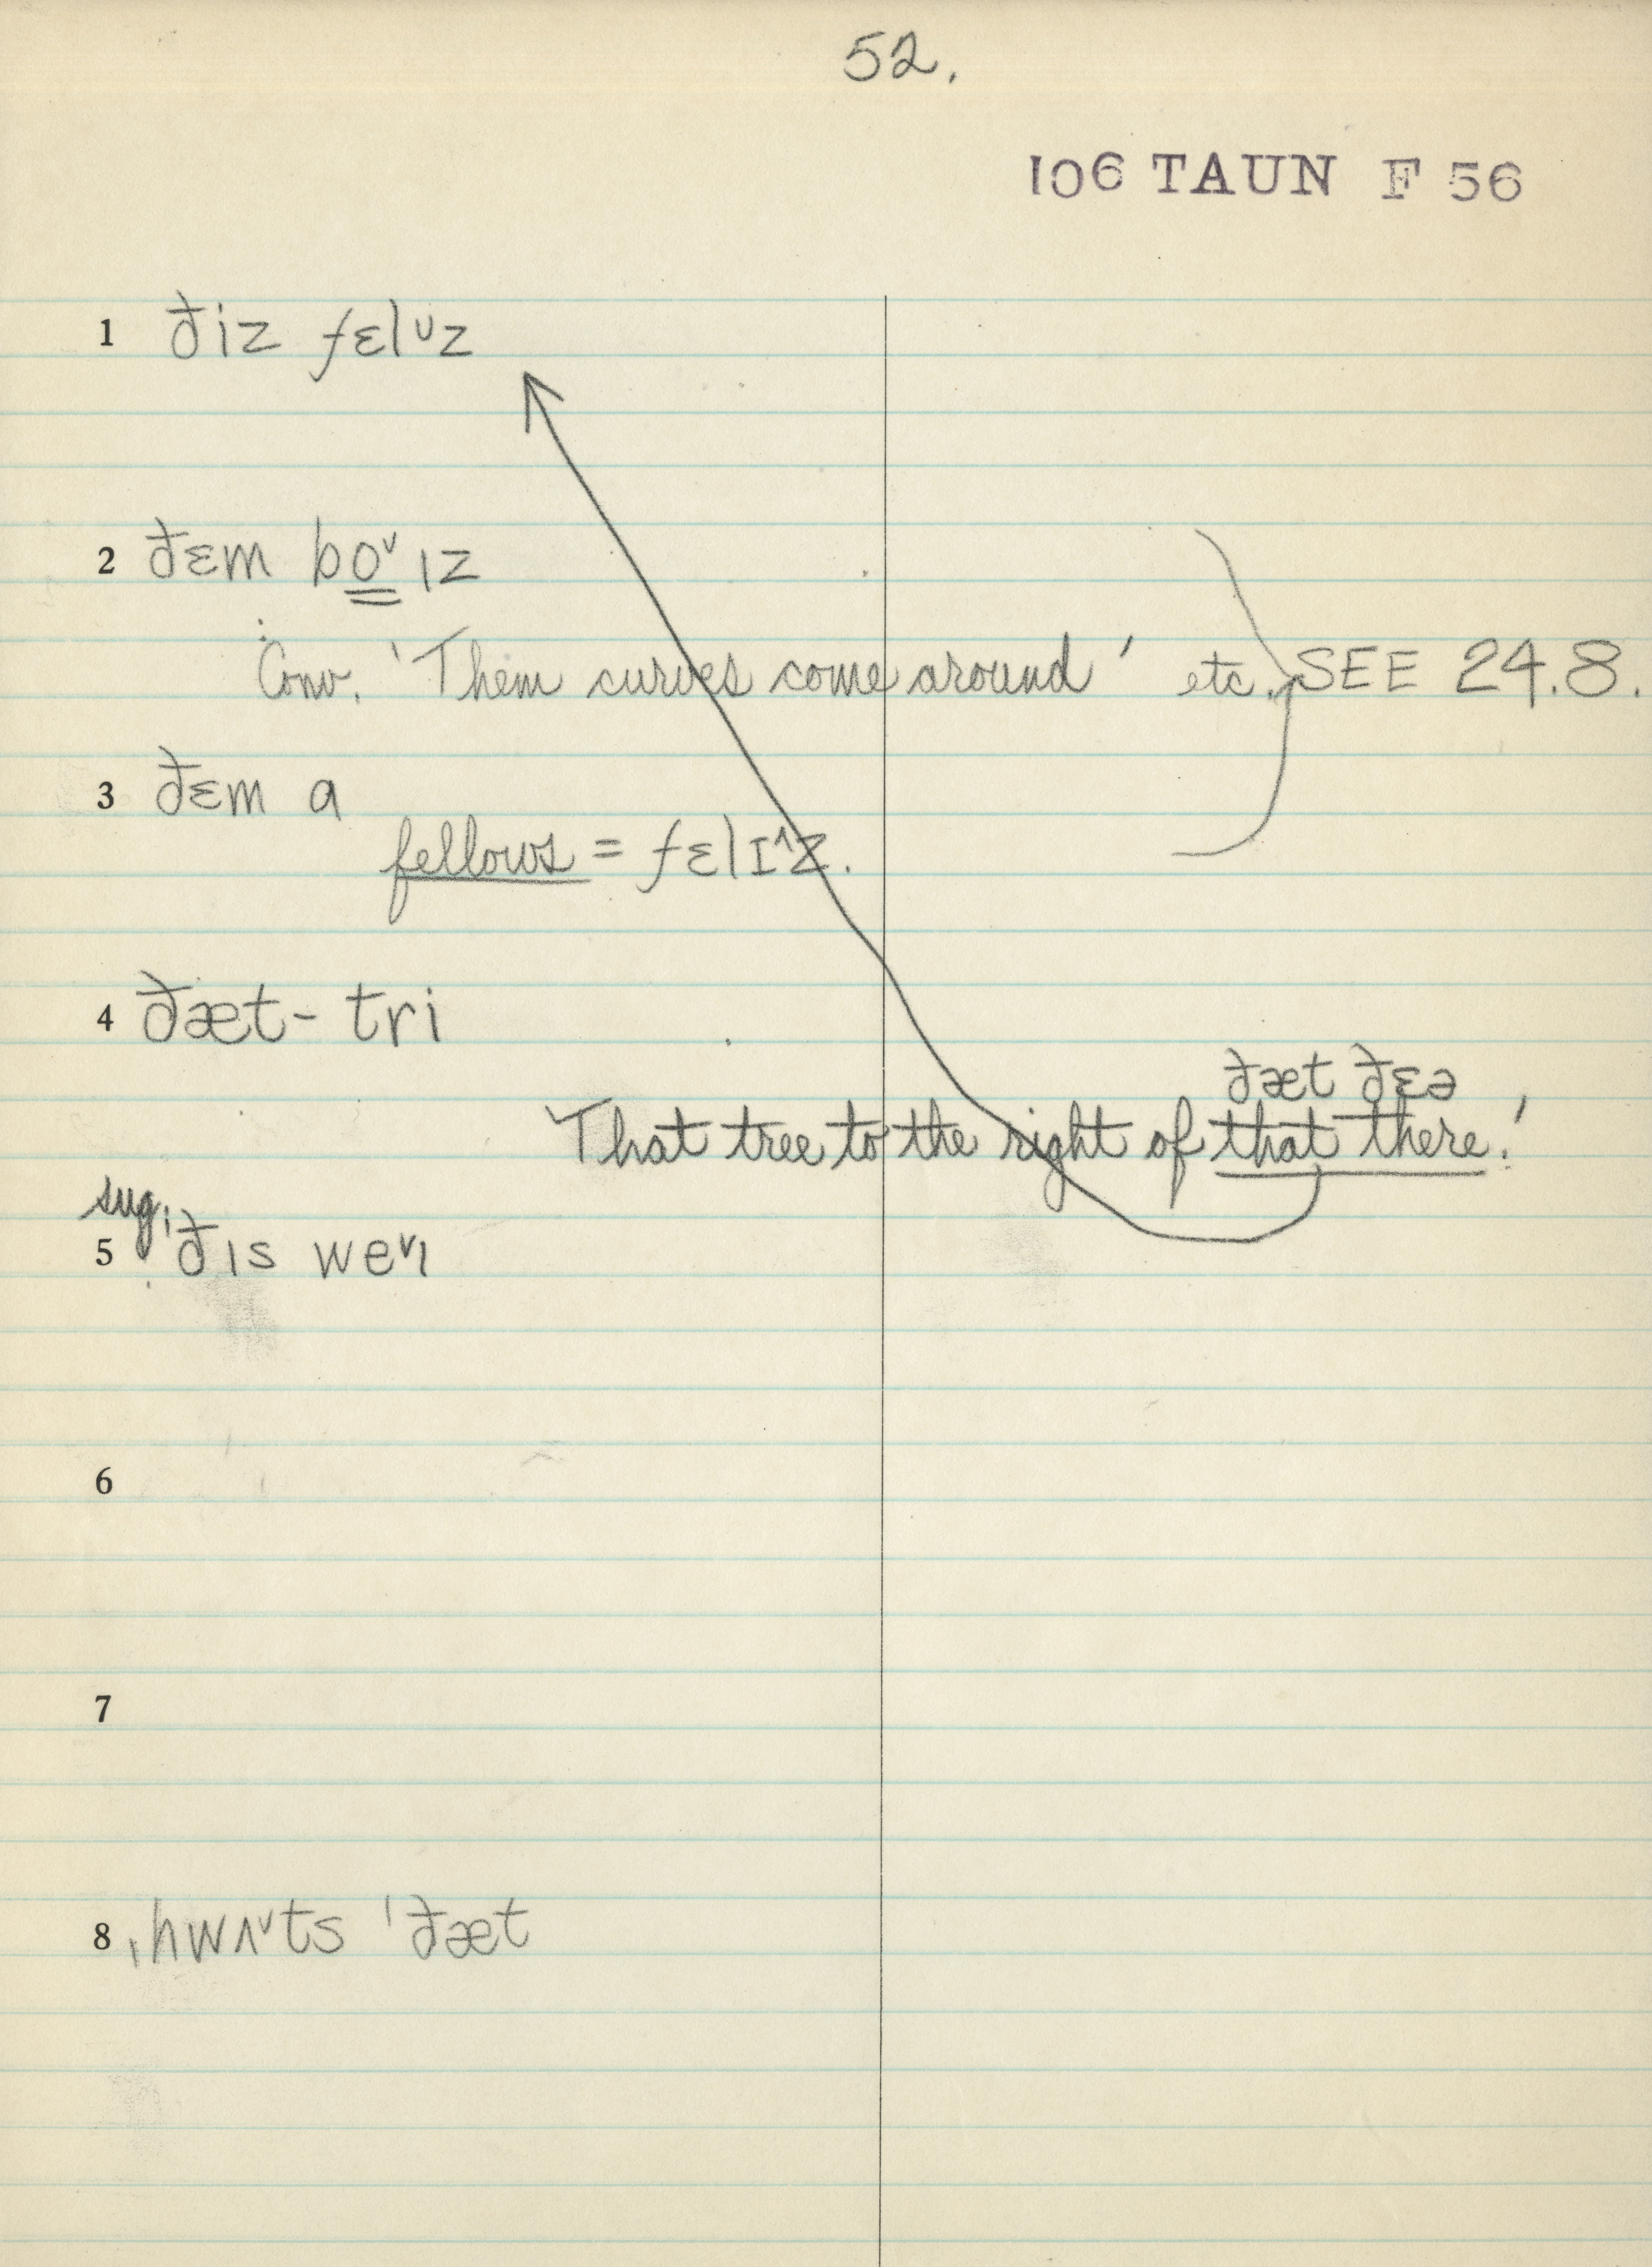 52.
106 TAUN F 56
1 ðiz fɛlᴜz
2 ðɛm bo̳ˇɪz
Conv. 'Them curves come around' etc. SEE 24.8.
3 ðɛm a
fellows = fɛlɪ^z.
4 ðæt- tri
ðæt ðɛə
That tree to the right of that there.'
sug.
5 ðɪs weˇɪ
6
7
8 ˌhwʌˇts ˈðæt